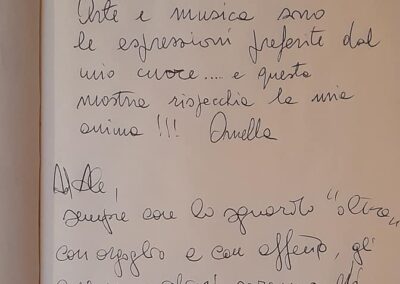 Arte e musica sono
le espressioni preferite dal
mio cuore.... e questa
mostra rispecchia la mia
anima !!! Ornella
Ad Ale,
sempre con lo sguardo "oltre"
con orgoglio e con affetto, gli